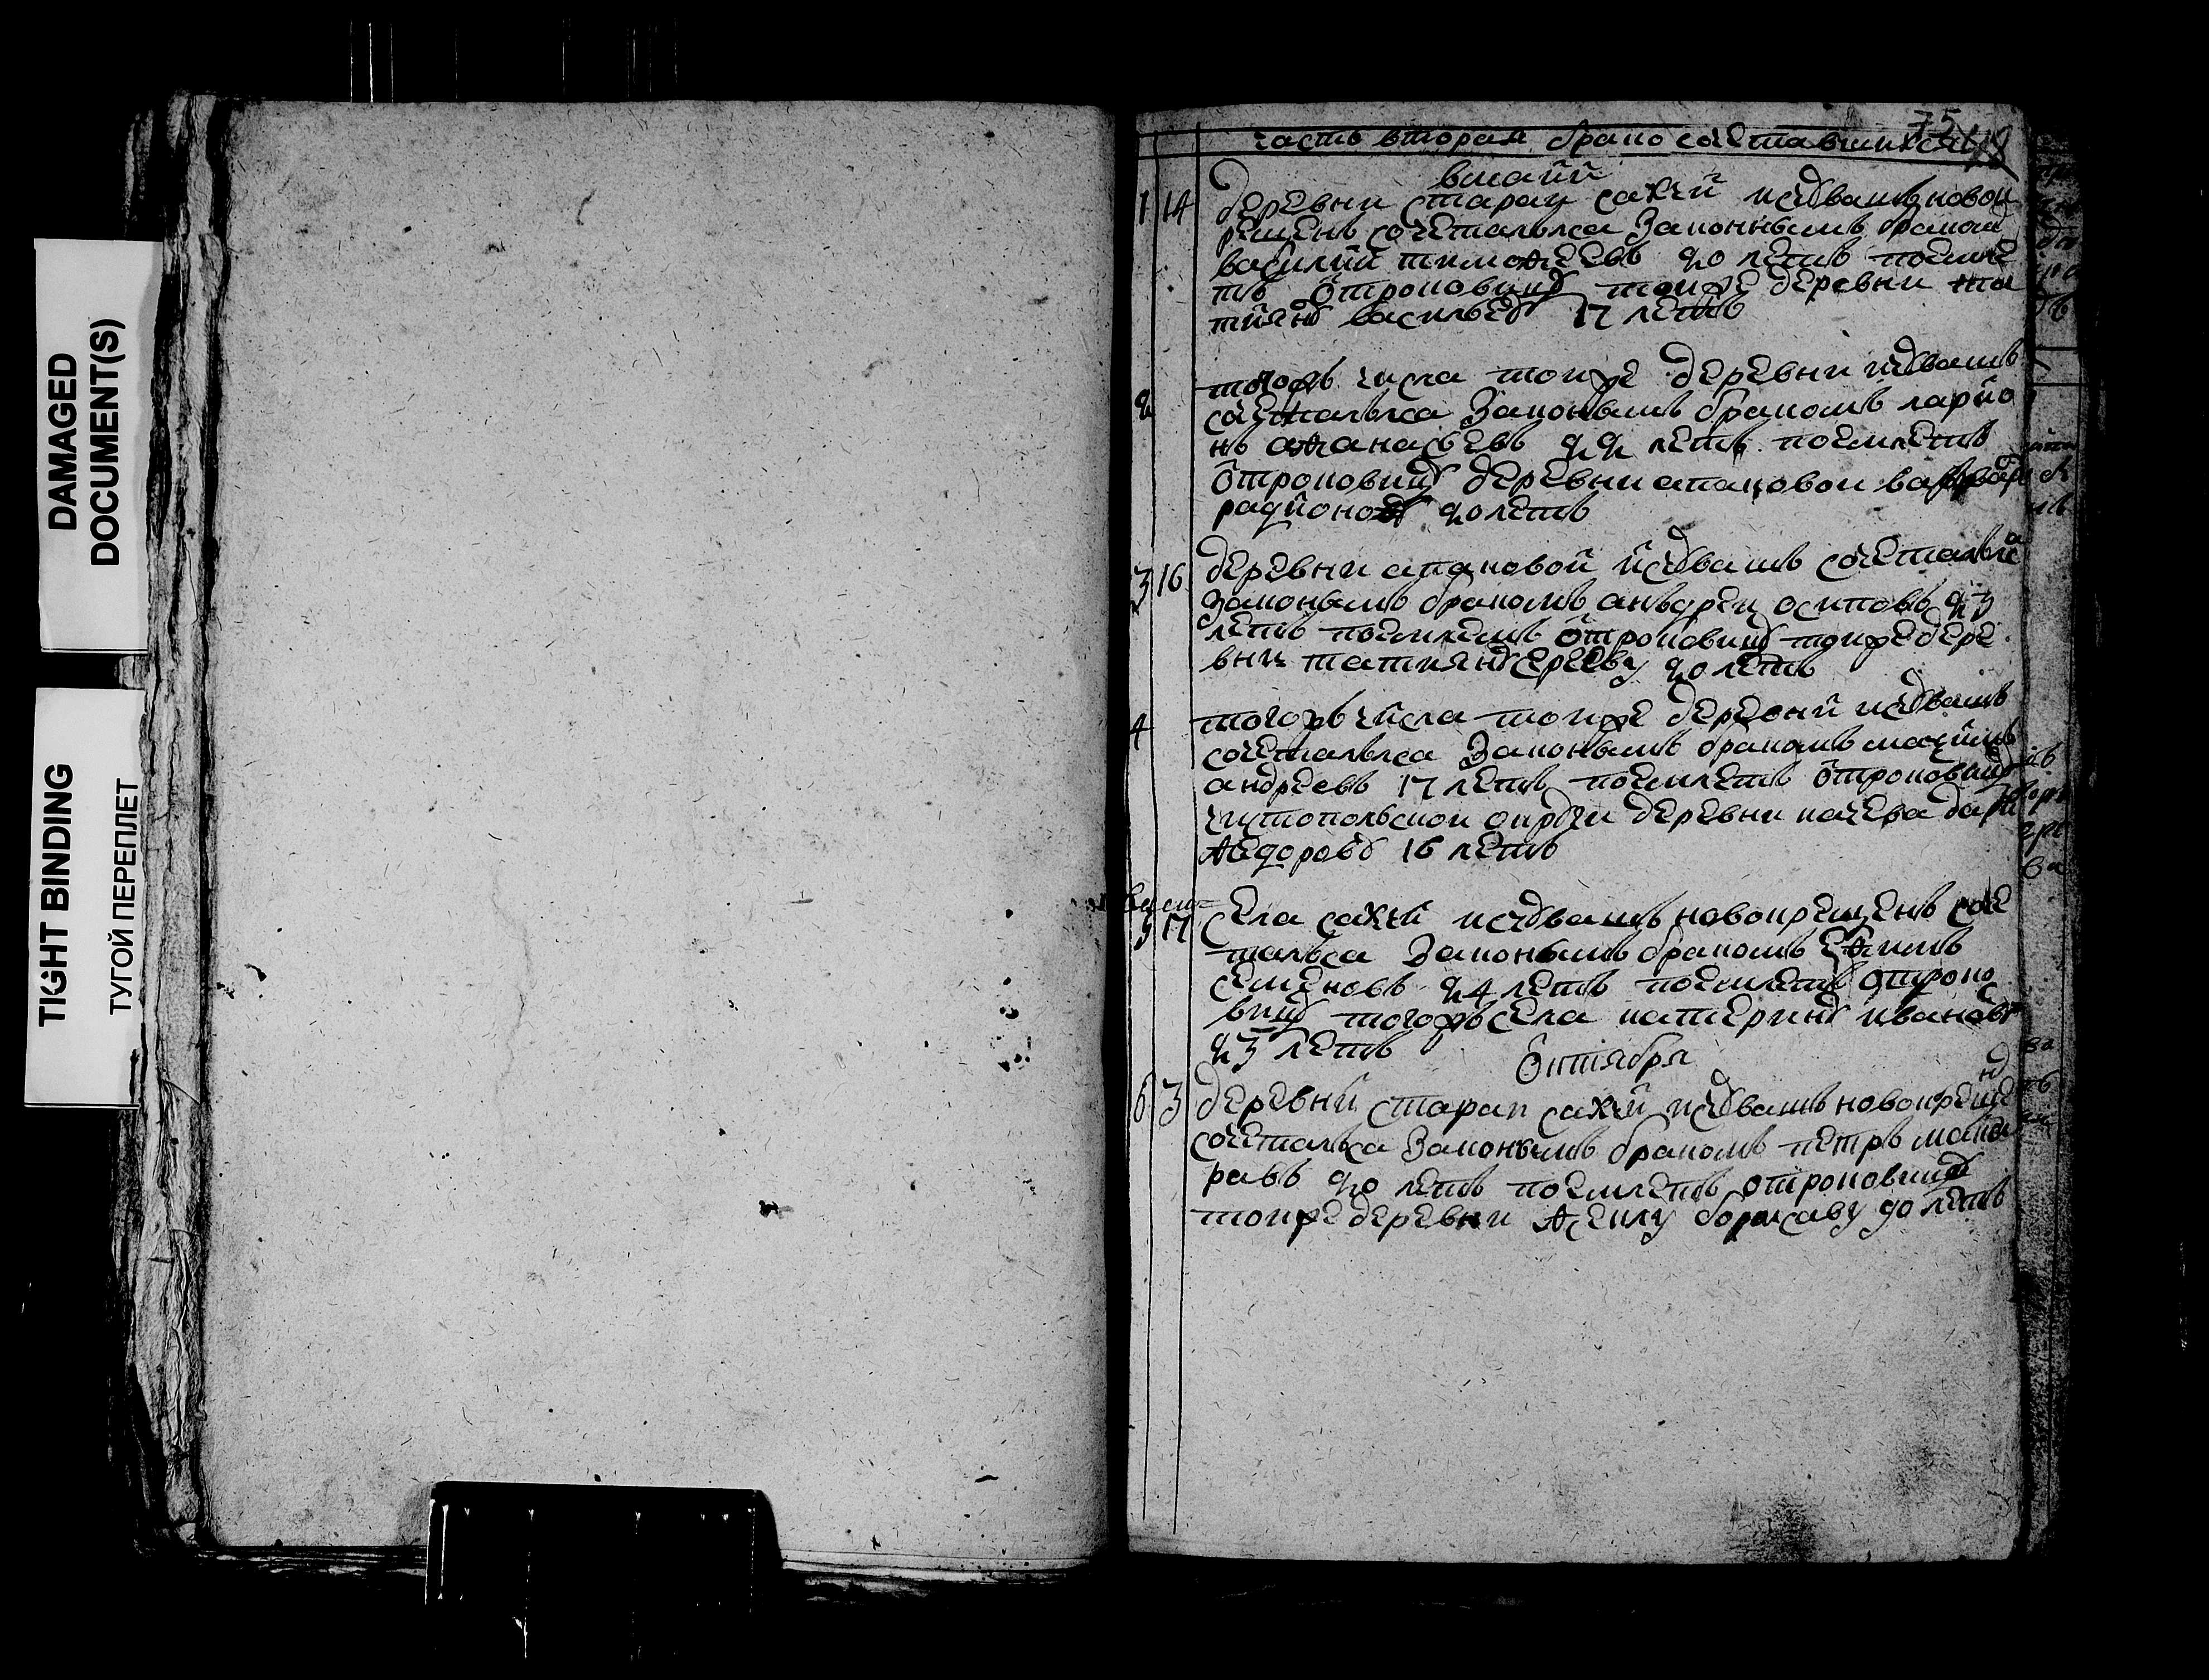 DAMAGED
DOCUMENT(S)
TIGHT BINDING
ТУГОЙ ПЕРЕПЛЕТ
75
часть вторая брако сочетавшихся
вмаий
1 14 деревни стараи сахчи исчувашъ новок
рещенъ сочеталься законнымъ бракомъ
василии тимофеевъ 20 летъ поемле
тъ отроковицу тоиже деревни та
тияну васильеву 17 летъ
2 тогожъ числа тоиже деревни исчувашъ
сочеталься законымъ бракомъ ларио
нъ афанасьевъ 22 летъ поемлетъ
отроковицу деревни варвару
радионову 20 летъ
3 16 деревни исчувашъ сочеталься
законымъ бракомъ анъдреи осиповъ 23
летъ поемлетъ отроковицу тоиже дере
вни татияну 20 летъ
4 тогожъ числа тоиже деревни исчувашъ
сочеталься законымъ бракомъ
андреевъ 17 летъ поемлетъ отроковицу
чистопольскои округи деревни дарю
федорову 16 летъ
5 17 села сахчи исчувашъ новокрещенъ соче
тальса законымъ бракомъ ефимъ
семеновъ 24 летъ поемлетъ отроко
вицу тогожъ села катерину иванову
23 летъ
Октября
6 3 деревни стараи сахчи исчувашъ новокрещенъ
сочетальса законымъ бракомъ петръ мака
равъ 20 летъ поемлетъ отроковицу
тоиже деревни летъ